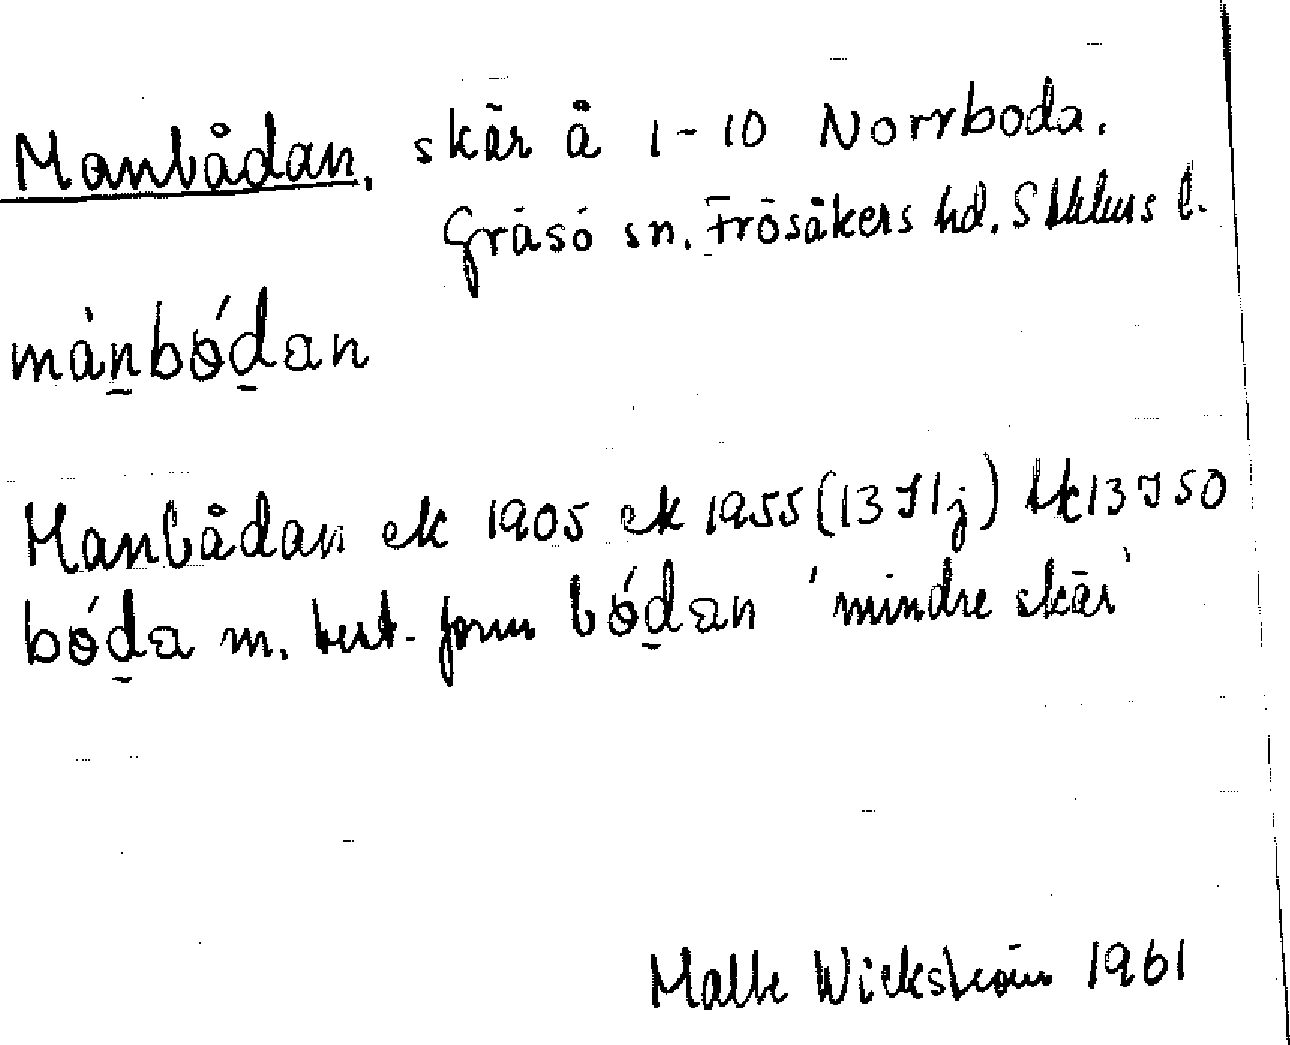 Manbådan, skär å 1-10 Norrboda.
Gräsö sn. Frösåkers hd. Sthlms l.
mànbódan
Manbådan ek 1905 ek 1955 (13I1j) Lk13I50
bóda m. best. form bódan 'mindre skär'
Malte Wickström 1961